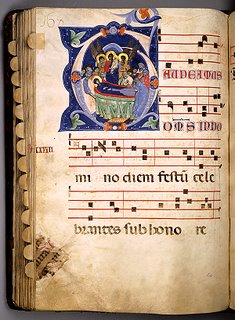 GAUDEAMUS
OM̄S IN DO
mi no diem festū cele
brantes sub hono re